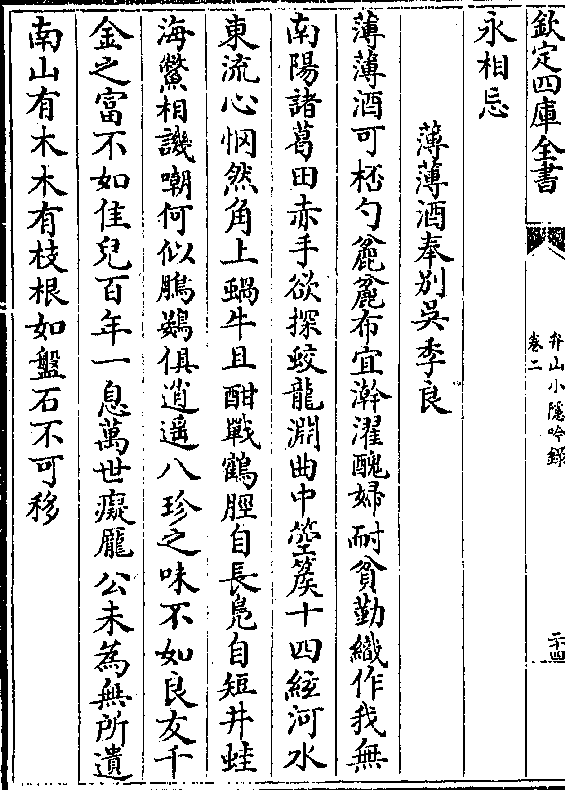 欽定四庫全書
弁山小隱吟録
卷二
二十四
永相忘
薄薄酒奉别吳季良
薄薄酒可桮勺麄麄布宜澣濯醜婦耐貧勤織作我無
南陽諸葛田赤手欲探蛟龍淵曲中箜篌十四絃河水
東流心惘然角上蝸牛且酣戰鶴脛自長鳧自短井蛙
海鱉相譏嘲何似鵬鷃俱逍遥八珍之味不如良友千
金之富不如佳兒百年一息萬世癡龎公未為無所遺
南山有木木有枝根如盤石不可移